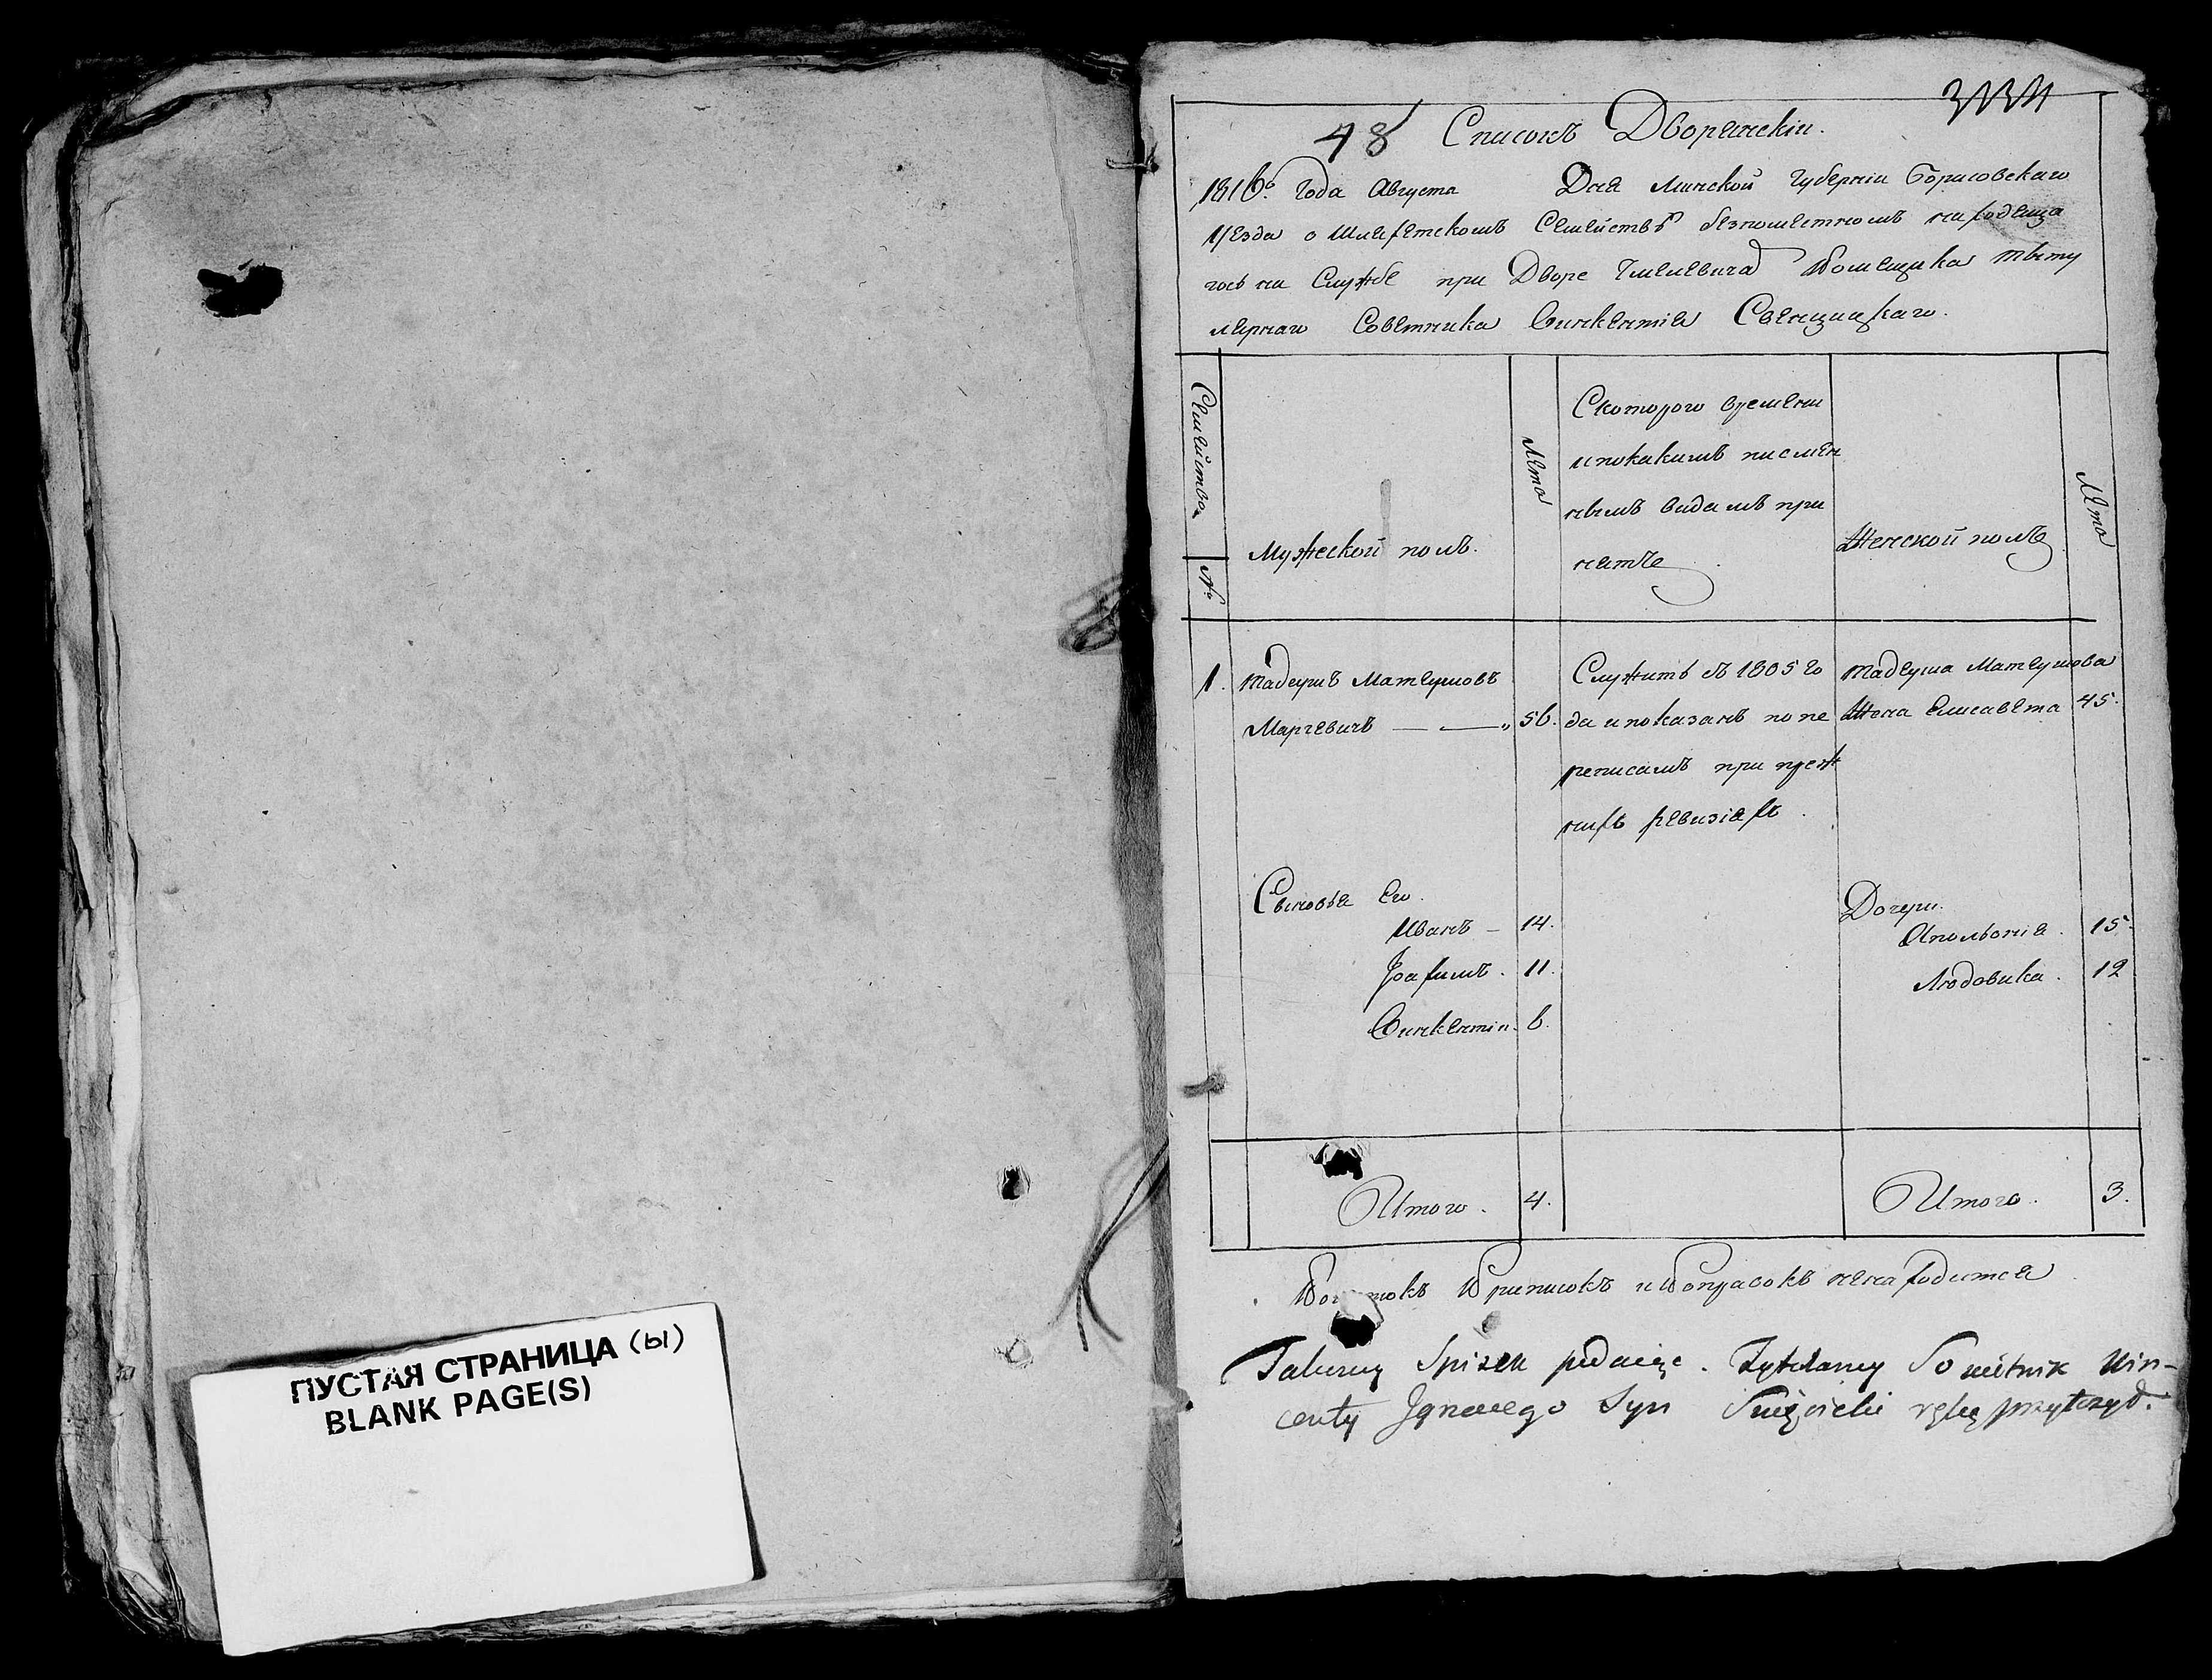 ПУСТАЯ СТРАНИЦА (ы)
BLANK PAGE(S)
48 Списокъ Дворянскіи.
1816го. Года Августа Дня Минской Губерніи Борисовскаго
Уезда о Шляхетскомъ Семействѣ безпоместномъ находяща
гось на Службе при Дворе Помещика титу
лярнаго Советника Викентія Свенцицкаго.
Семейство
№
Мужеской полъ.
Лета
Скоторого времени
ипокакимъ писмен
нымъ видамъ при
нятъ
Женской полъ
Лета
1. Тадеушъ Матеушовъ
Марцевичъ — — 56.
Служитъ съ 1805 го
да и показанъ по пе
реписамъ при преж
нихъ ревизіяхъ.
Тадеуша Матеушова
Жена Елисавета 45.
Сыновья Его.
Иванъ — 14.
Іоахимъ. 11.
Викентіи. 6.
Дочери.
Апольонія. 15.
Людовика. 12
Итого. 4.
Итого. 3.
Приписокъ и Поправокъ ненаходится
Takowy Spisek podaięc. Tytularny Sowietnik Win-
centy Jgnacego Syn Swięcicki rękę przyłożył.